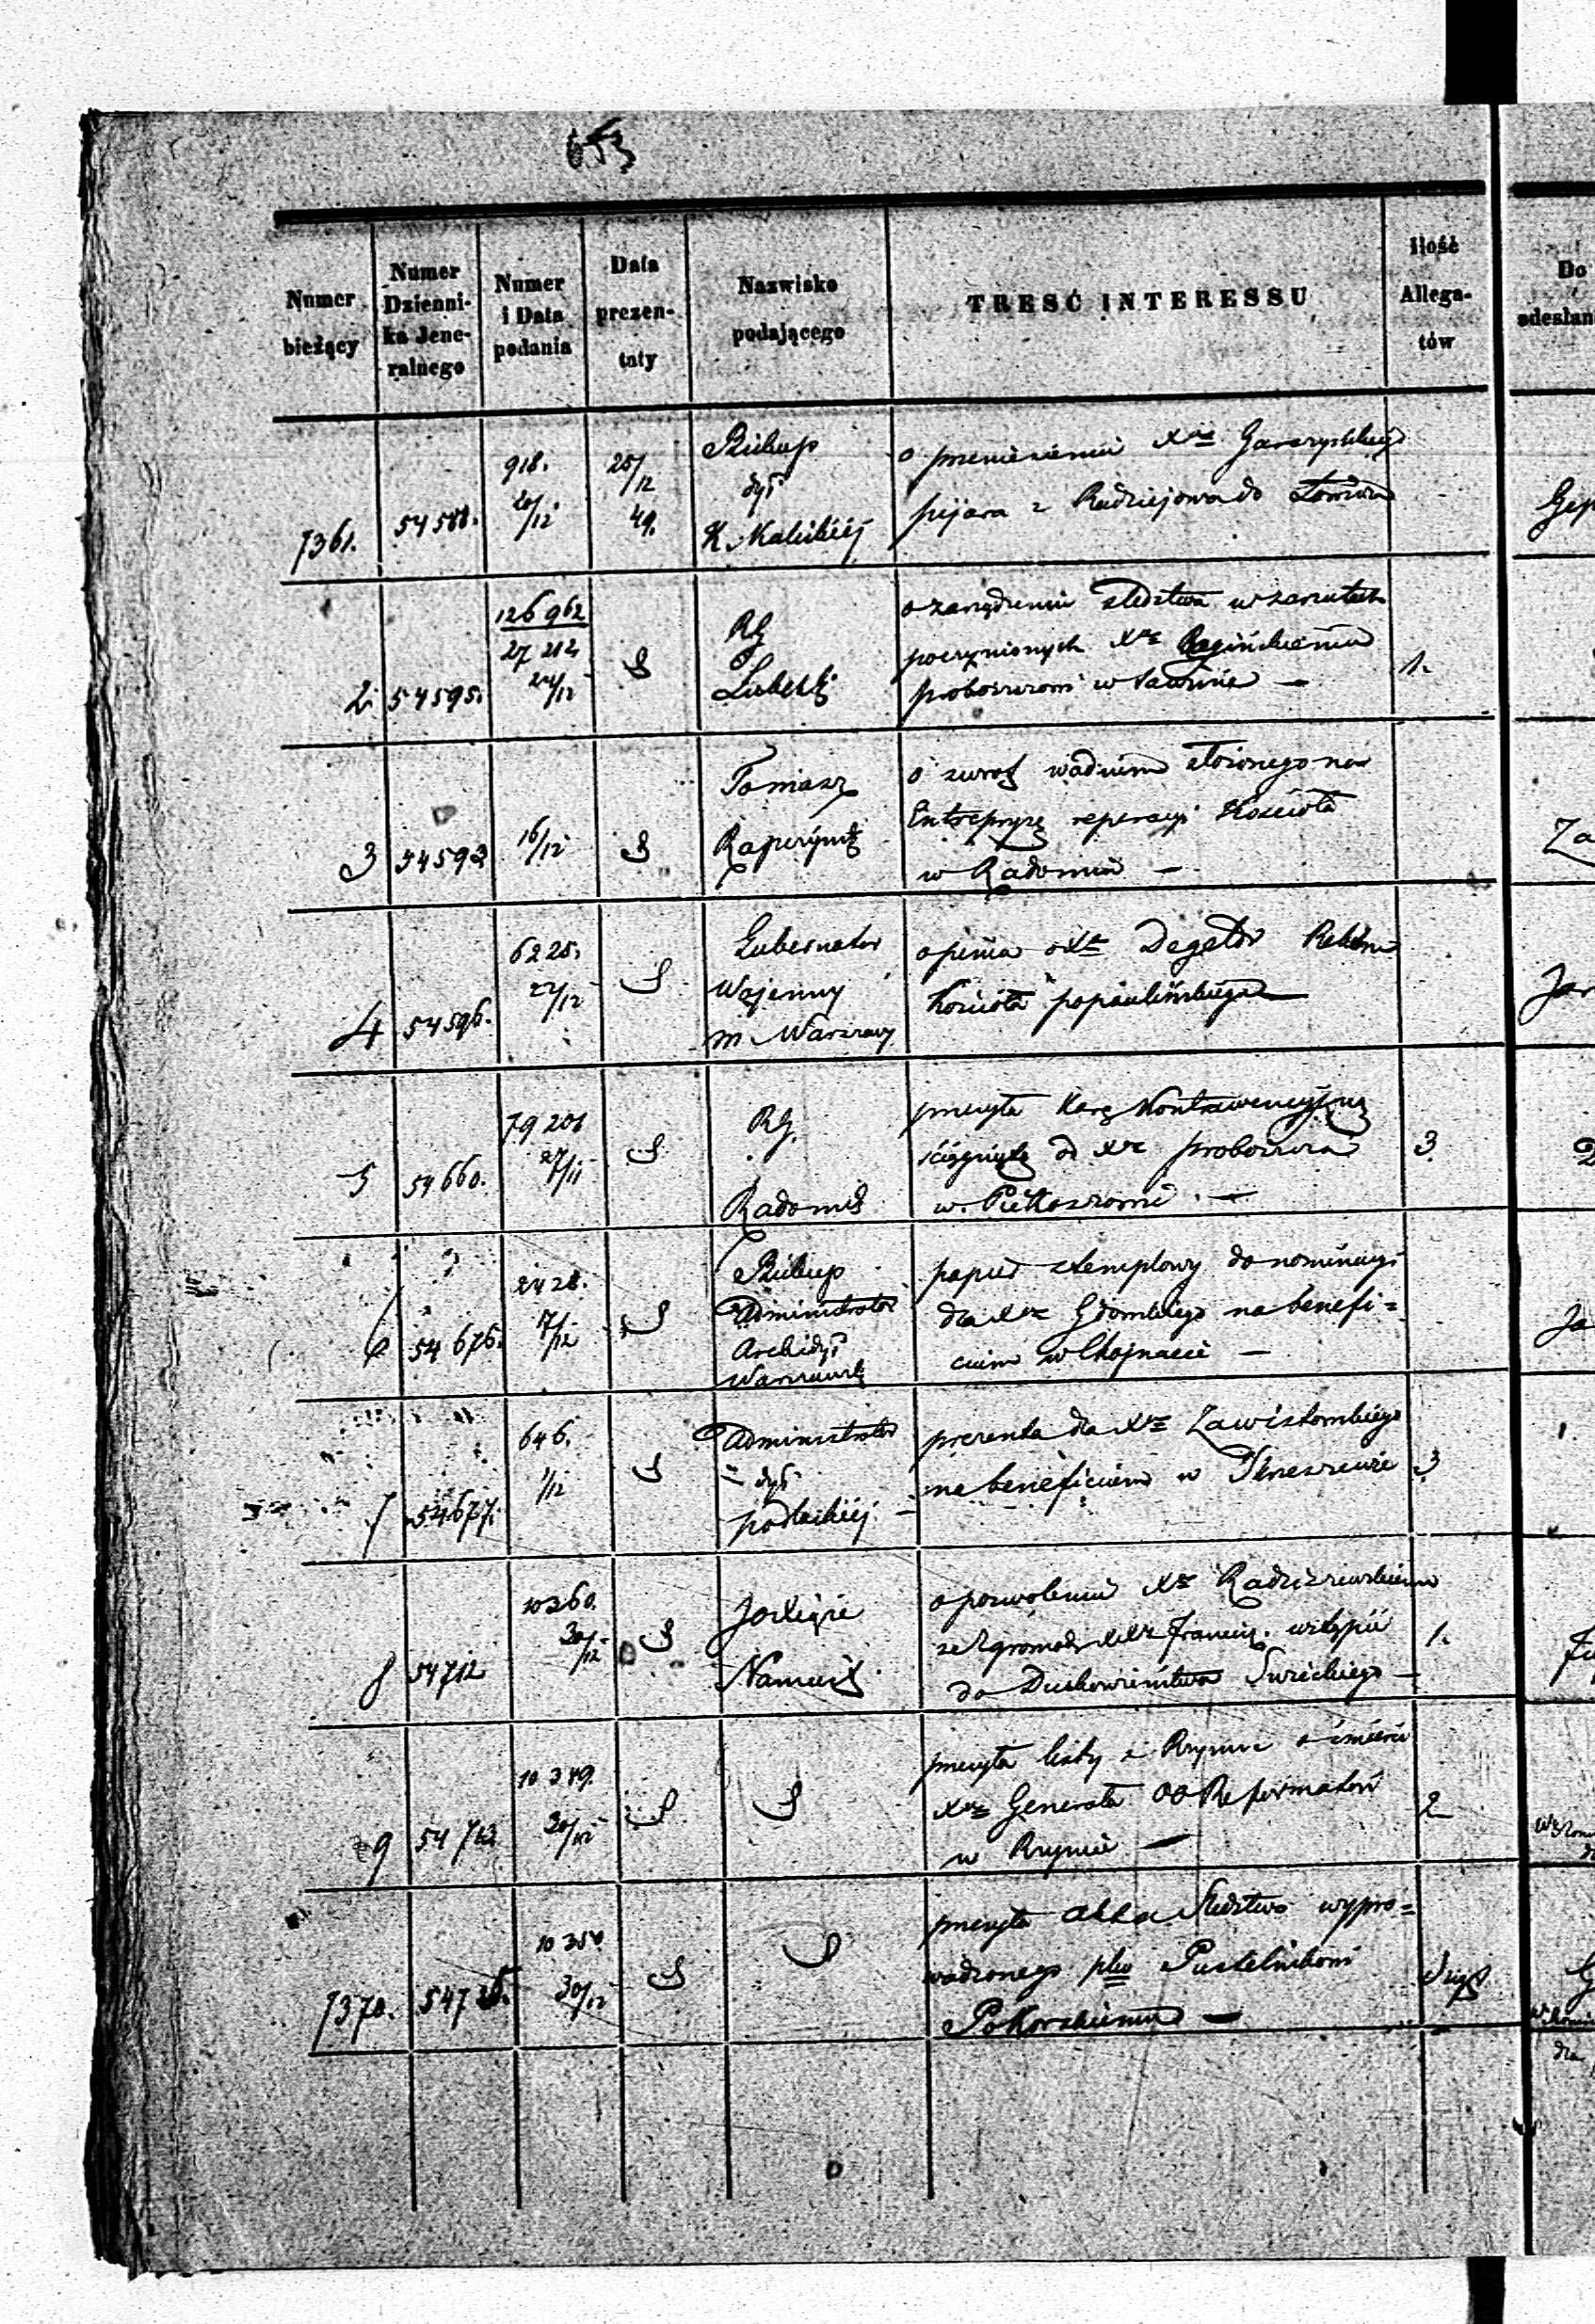 653
Numer bieżący
Numer Dzienni- ka Jene- ralnego
Numer i Data podania
Data prezen- taty
Nazwisko podającego
TRESĆ INTERESSU
Ilość Allega- tów
Do odesłan
7361. 54588. 918. 20/12 25/12 49.
Biskup
dys
K. Kaliskiéj
o przeniesienie Xdza
pijara z Radziejowa do Łowicza
2 54595. 126962 27212 24/12
RG
Lubelsk
o zarządzenie śledztwa w zarzutach
poczynionych Xdz
proboszczowi w Sawinie —
1.
3 54593 16/12
Tomasz
o zwrot wadium złożonego na
Entrepryzę reperacyi Kościoła
w Radomiu —
Za
4 54596. 6225. 22/12
Gubernator
Wojenny
m. Warszawy
opinia o Xdz Degetor Rektora
Kościoła popaulińskiego —
5 54660. 79201 27/11
RG.
Radoms
przesyła Karę Kontrawencyjną
ściągniętą od Xdz proboszcza
w Piekoszowie —
3
6 54676. 2428. 17/12
Biskup
Administrator
Archidys
Warszawsk
papier stemplowy do nominacyi
dla Xdz na benefi=
cium w Chojnacie —
Ja
7 54677. 646. 1/12
Administrator
dys
podlaskiéj
prezenta dla Xdz Zawistowskiego
na beneficium w
3
8 54712 10360. 30/12
o pozwolenie Xdz Radziszewskiemu
ze Zgromadz XXdz Francisz. wstąpić
do Duchowieństwa Świeckiego —
1.
9 54713 10349. 30/12
przesyła listy z Rzymu o śmierci
Xdz Generała OO Reformatów
w Rzymie —
2
7370. 10350 30/12
przesyła akta Śledztwa wypro=
wadzonego plko Pustelnikowi
Pokorskiemu —
dla